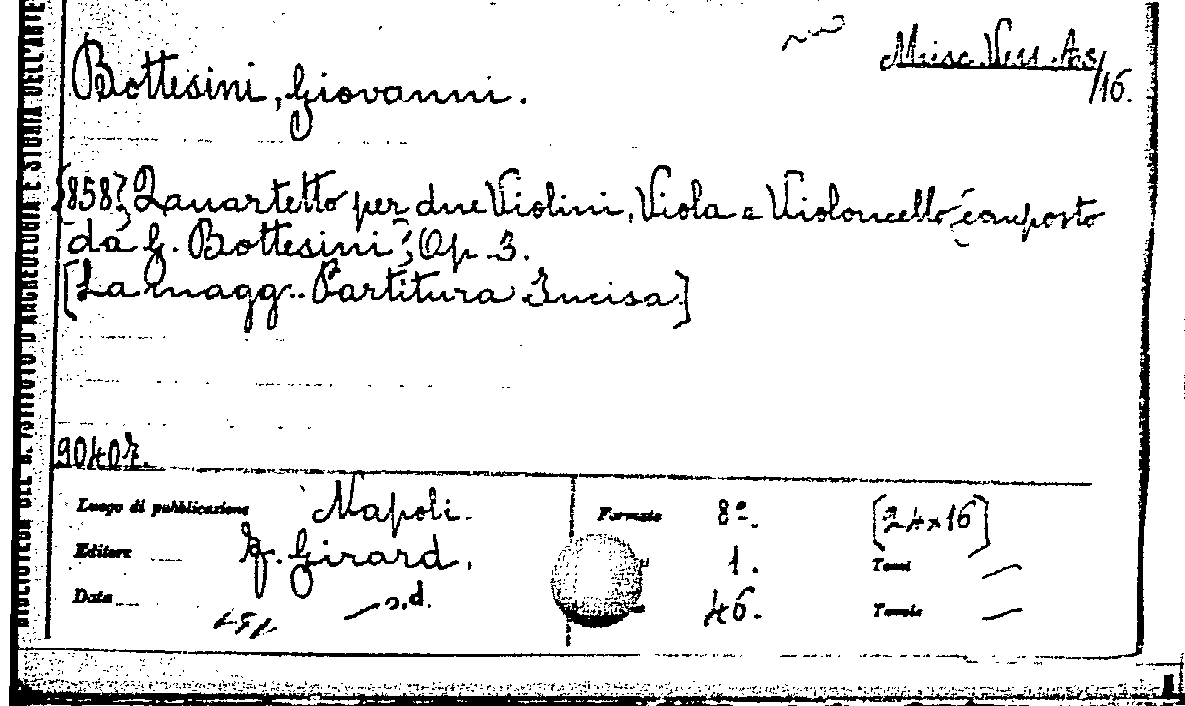 BIBLIOTECA DEL R. ISTITUTO D'ARCHEOLOGIA E STORIA DELL'ARTE
Misc. Vess. A.s/16.
Bottesini, Giovanni.
[858] Quartetto per due Violini, Viola e Violoncello composto
da G. Bottesini; Op. 3.
[La magg.. Partitura Incisa]
90407.
Luogo di pubblicazione Napoli. Formato 8º. [24x16]
Editore G. Girard. 1. Tomi —
Data — s.d. 46. Tavole —